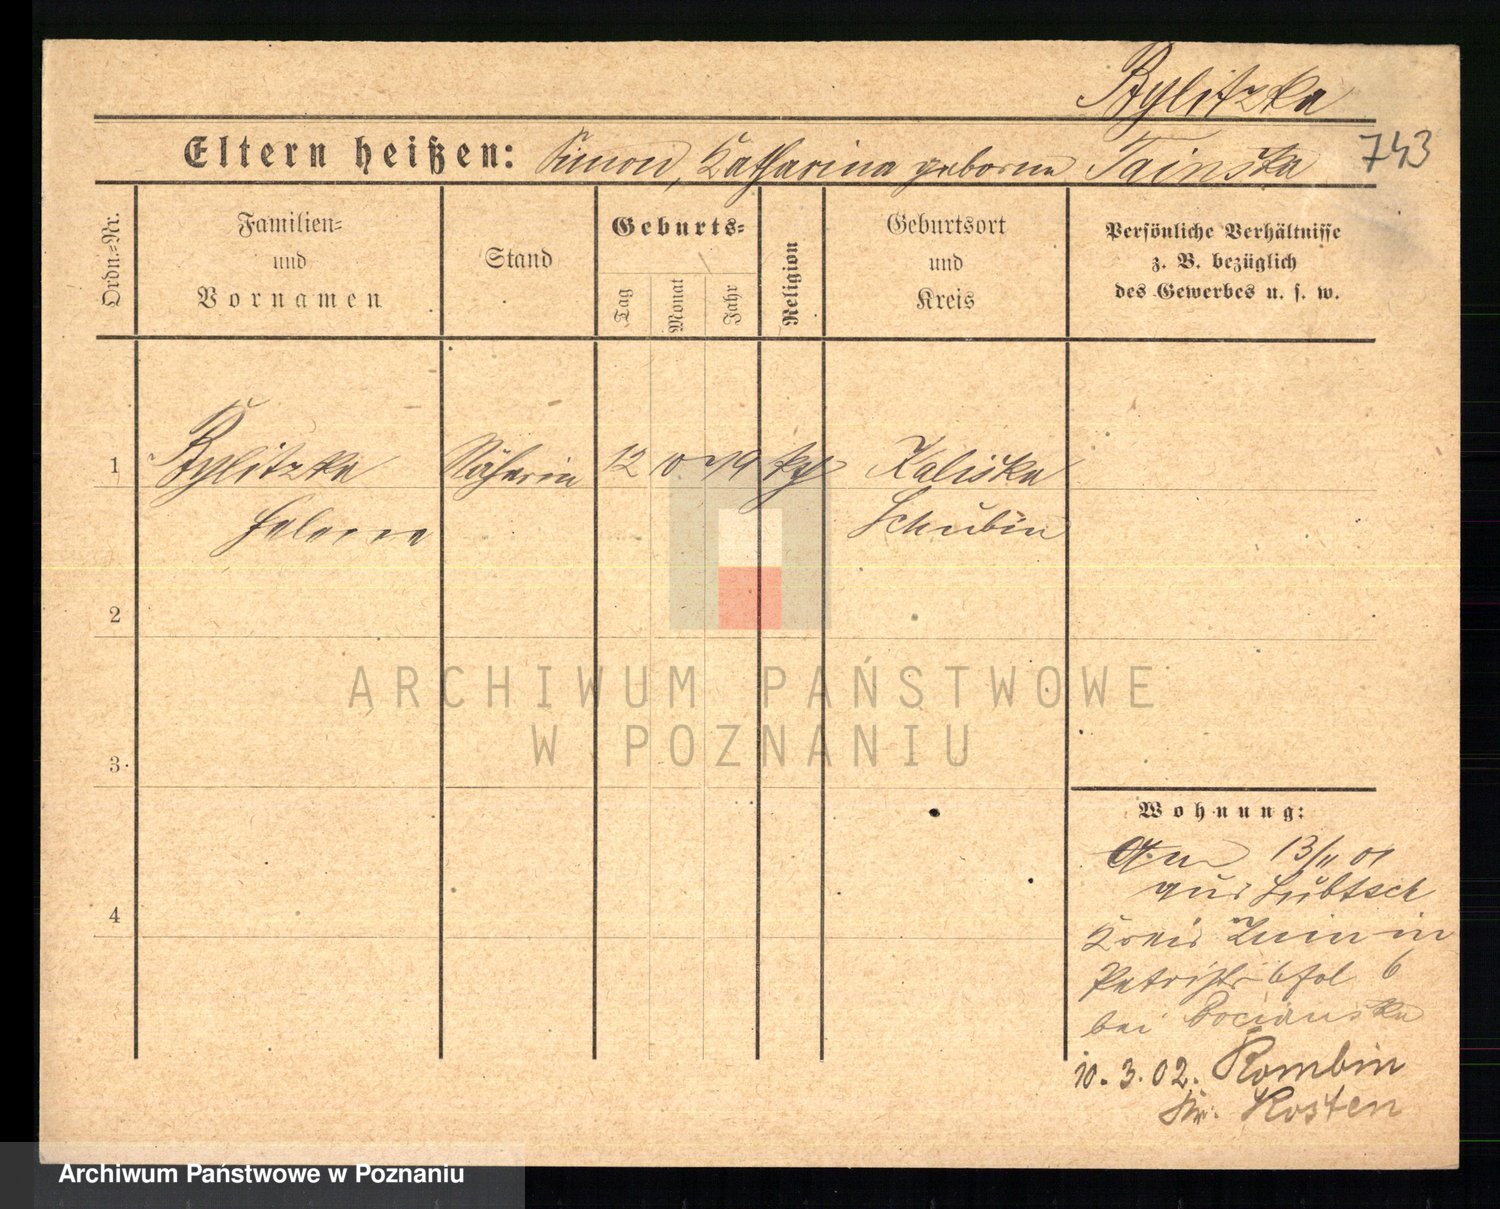 Bylitzka
Eltern heißen: Simon, Katharina geborene Tainska
743
Ordn.=Nr.
Familien=
und
Vornamen
Stand
Geburts=
Tag
Monat
Jahr
Religion
Geburtsort
und
Kreis
Persönliche Verhältnisse
z. B. bezüglich
des Gewerbes u. s. w.
1 Bylitzka Näherin 12 79 Kaliska
Helene Schubin
2
3
4
ARCHIWUM PAŃSTWOWE
W POZNANIU
Wohnung:
13/11 01
aus Lubtsch
Kreis Znin in
6
bei Bocianska
10. 3. 02. Rombin
Kr. Kosten
Archiwum Państwowe w Poznaniu